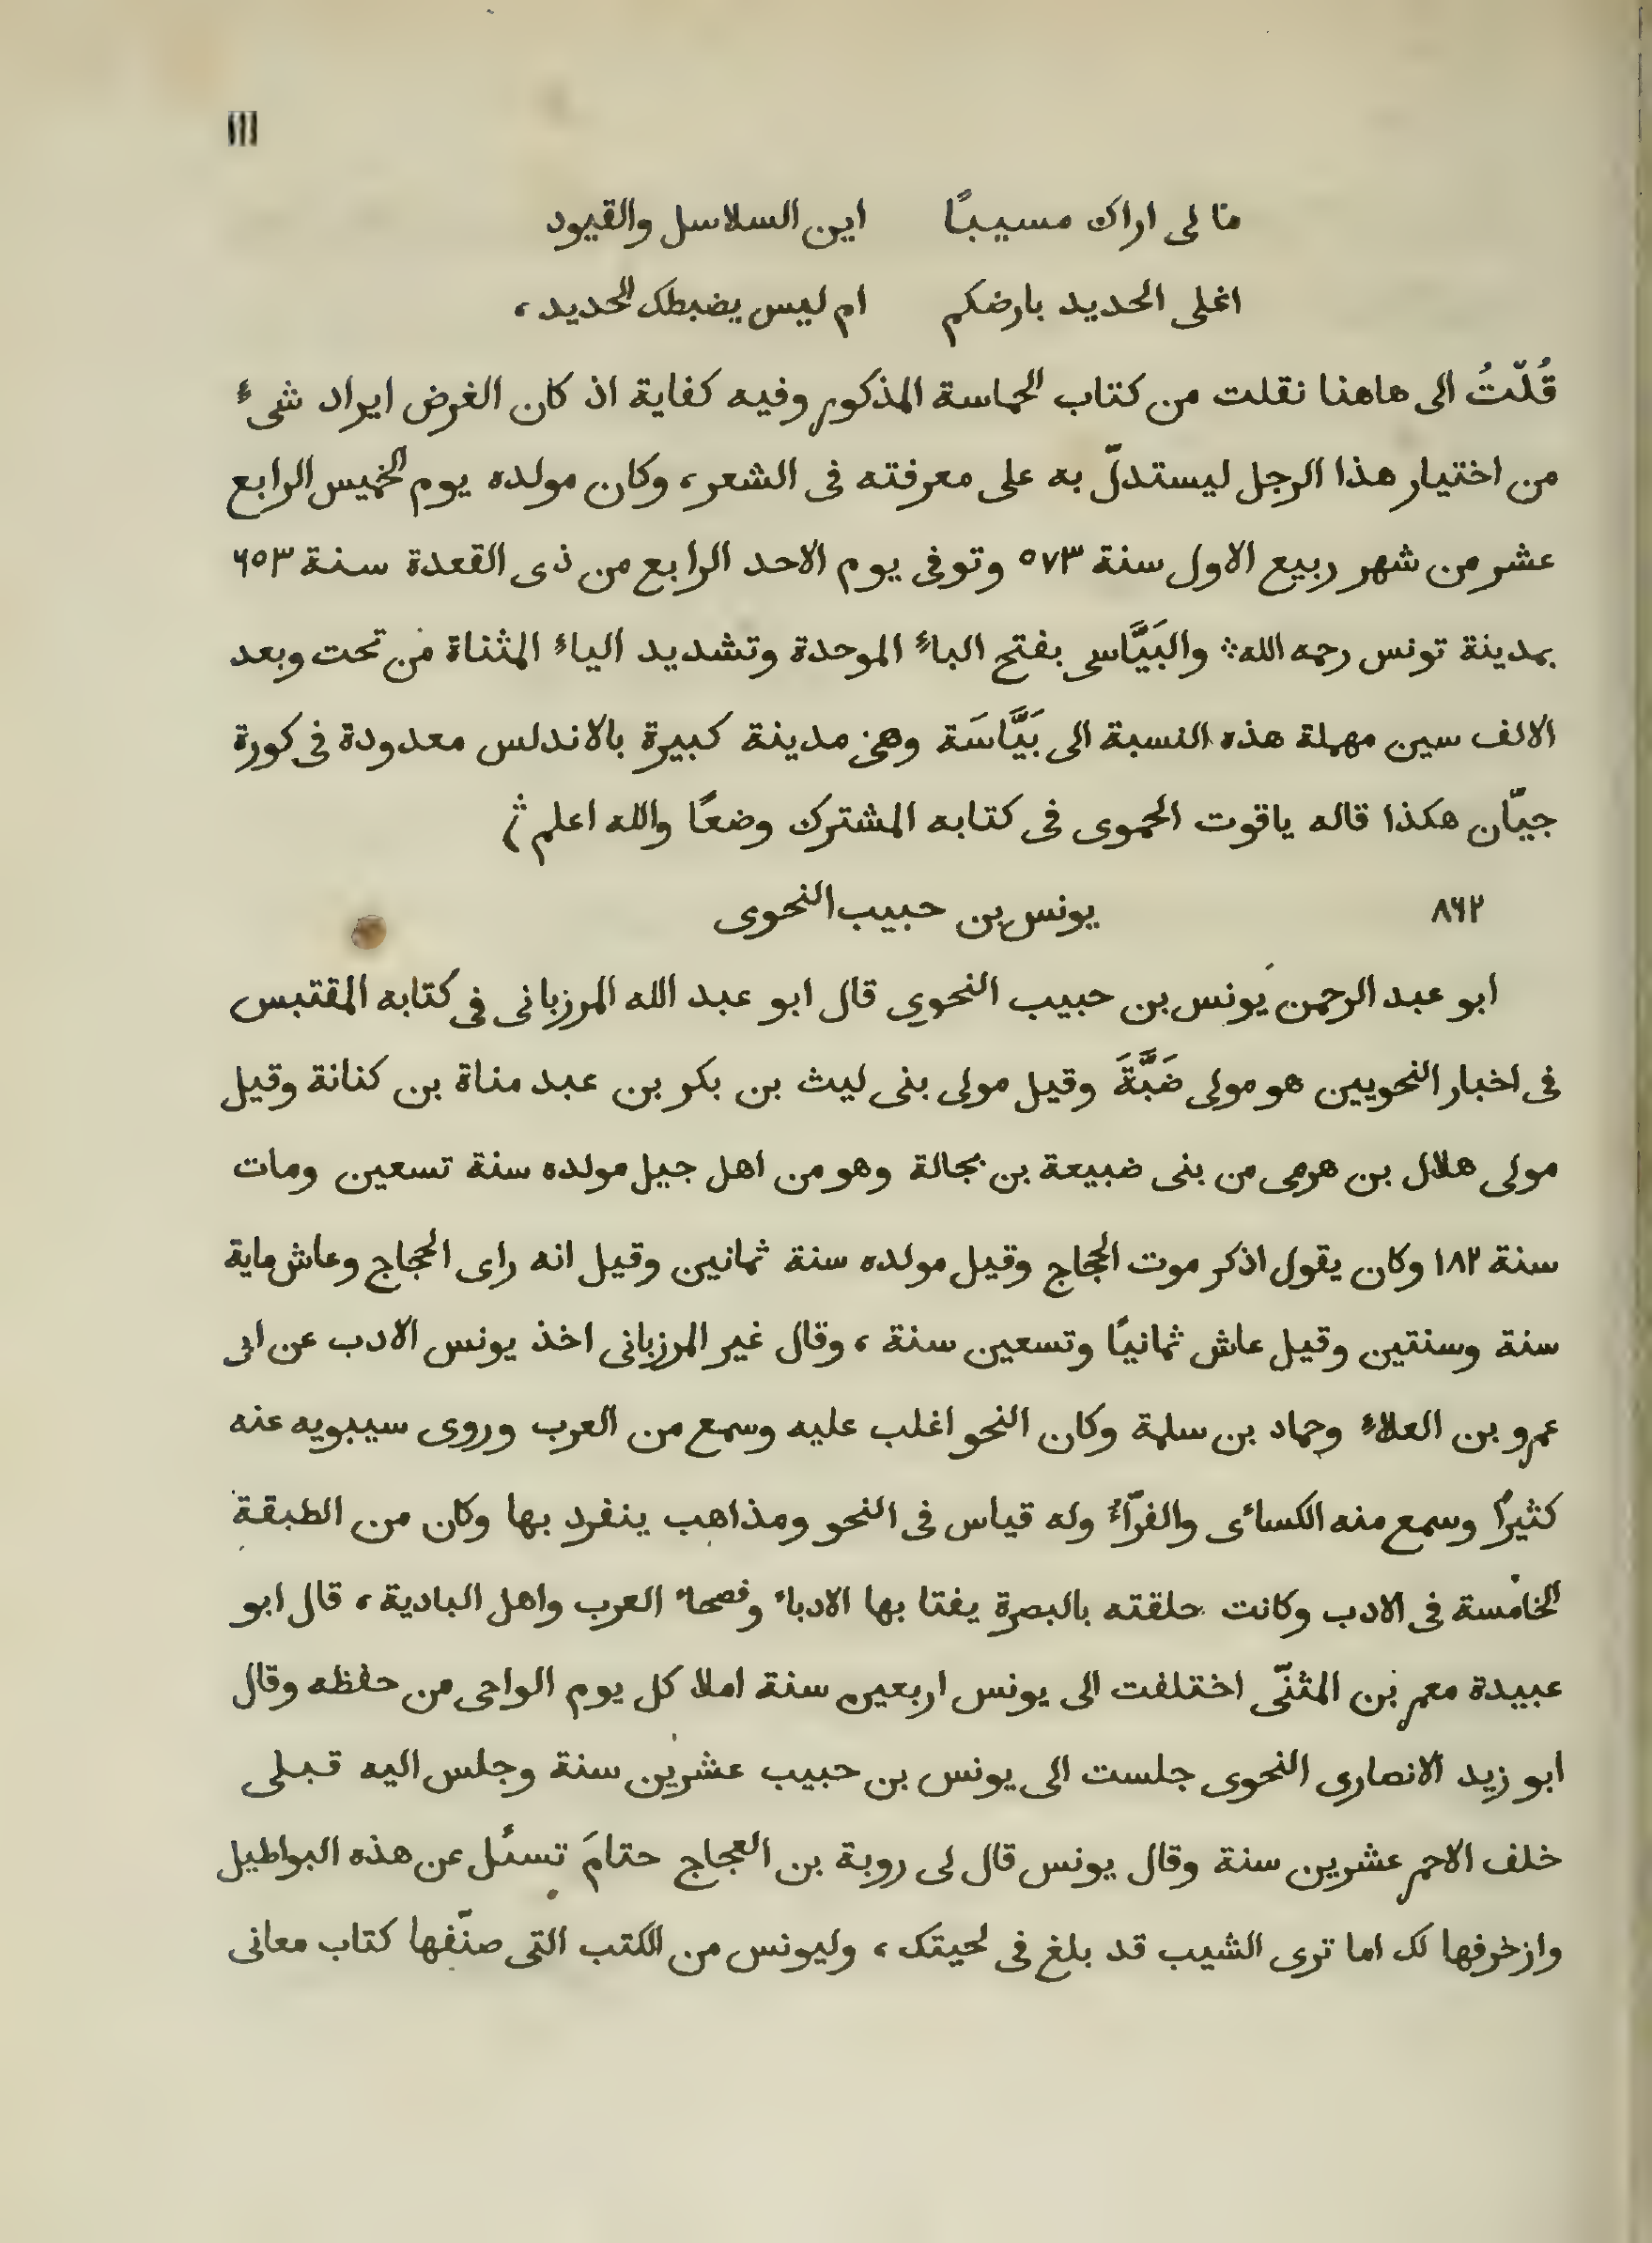 ١١١
ما لى اراك مسيبًا اين السلاسل والقيود
اغلى الحديد بارضكم ام ليس يضبطك الحديد ،
قُلْتُ الى هاهنا نقلت من كتاب الحماسة المذكور وفيه كفاية اذ كان الغرض ايراد شىء
من اختيار هذا الرجل ليستدلّ به على معرفته فى الشعر ، وكان مولده يوم الخميس الرابع
عشر من شهر ربيع الاول سنة ٥٧٣ وتوفى يوم الاحد الرابع من ذى القعدة سنة ٦٥٣
بمدينة تونس رحمه الله ۞ والبَيَّاسى بفتح الباء الموحدة وتشديد الياء المثناة من تحت وبعد
الالف سين مهملة هذه النسبة الى بَيَّاسَة وهى مدينة كبيرة بالاندلس معدودة فى كورة
جيّان هكذا قاله ياقوت الحموى فى كتابه المشترك وضعًا والله اعلم ۞
٨٦٢ يونس بن حبيب النحوى
ابو عبد الرحمن يونس بن حبيب النحوى قال ابو عبد الله المرزبانى فى كتابه المقتبس
فى اخبار النحويين هو مولى ضَبَّةَ وقيل مولى بنى ليث بن بكر بن عبد مناة بن كنانة وقيل
مولى هلال بن هرمى من بنى ضبيعة بن بجالة وهو من اهل جبل مولده سنة تسعين ومات
سنة ١٨٢ وكان يقول اذكر موت الحجاج وقيل مولده سنة ثمانين وقيل انه راى الحجاج وعاش ماية
سنة وسنتين وقيل عاش ثمانيًا وتسعين سنة ، وقال غير المرزبانى اخذ يونس الادب عن ابى
عمرو بن العلاء وحماد بن سلمة وكان النحو اغلب عليه وسمع من العرب وروى سيبويه عنه
كثيرًا وسمع منه الكسائى والفرّاء وله قياس فى النحو ومذاهب ينفرد بها وكان من الطبقة
الخامسة فى الادب وكانت حلقته بالبصرة يفتا بها الادباء وفصحاء العرب واهل البادية ، قال ابو
عبيدة معمر بن المثنّى اختلفت الى يونس اربعين سنة املا كل يوم الواحى من حفظه وقال
ابو زيد الانصارى النحوى جلست الى يونس بن حبيب عشرين سنة وجلس اليه قبلى
خلف الاحمر عشرين سنة وقال يونس قال لى روبة بن العجاج حتامَ تسئل عن هذه البواطيل
وازخرفها لك اما ترى الشيب قد بلغ فى لحيتك ، وليونس من الكتب التى صنّفها كتاب معانى